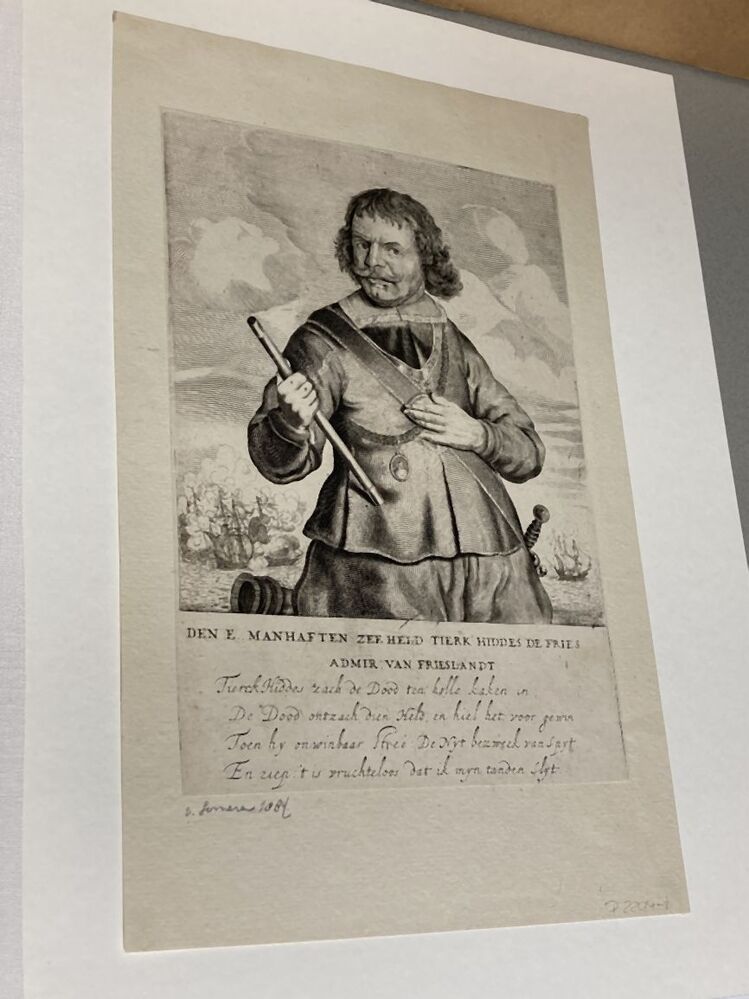 DEN E. MANHAFTEN ZEEHELD TIERK HIDDES DE FRIES
ADMIR. VAN FRIESLANDT
Tierck Hiddes zach de Dood ten holle kaken in
De Dood ontzach dien Held, en hiel het voor gewin
Toen hy onwinbaar stree. De Nyt bezweek van spyt
En ziep: 't is vruchteloos dat ik myn tanden slyt.
v.